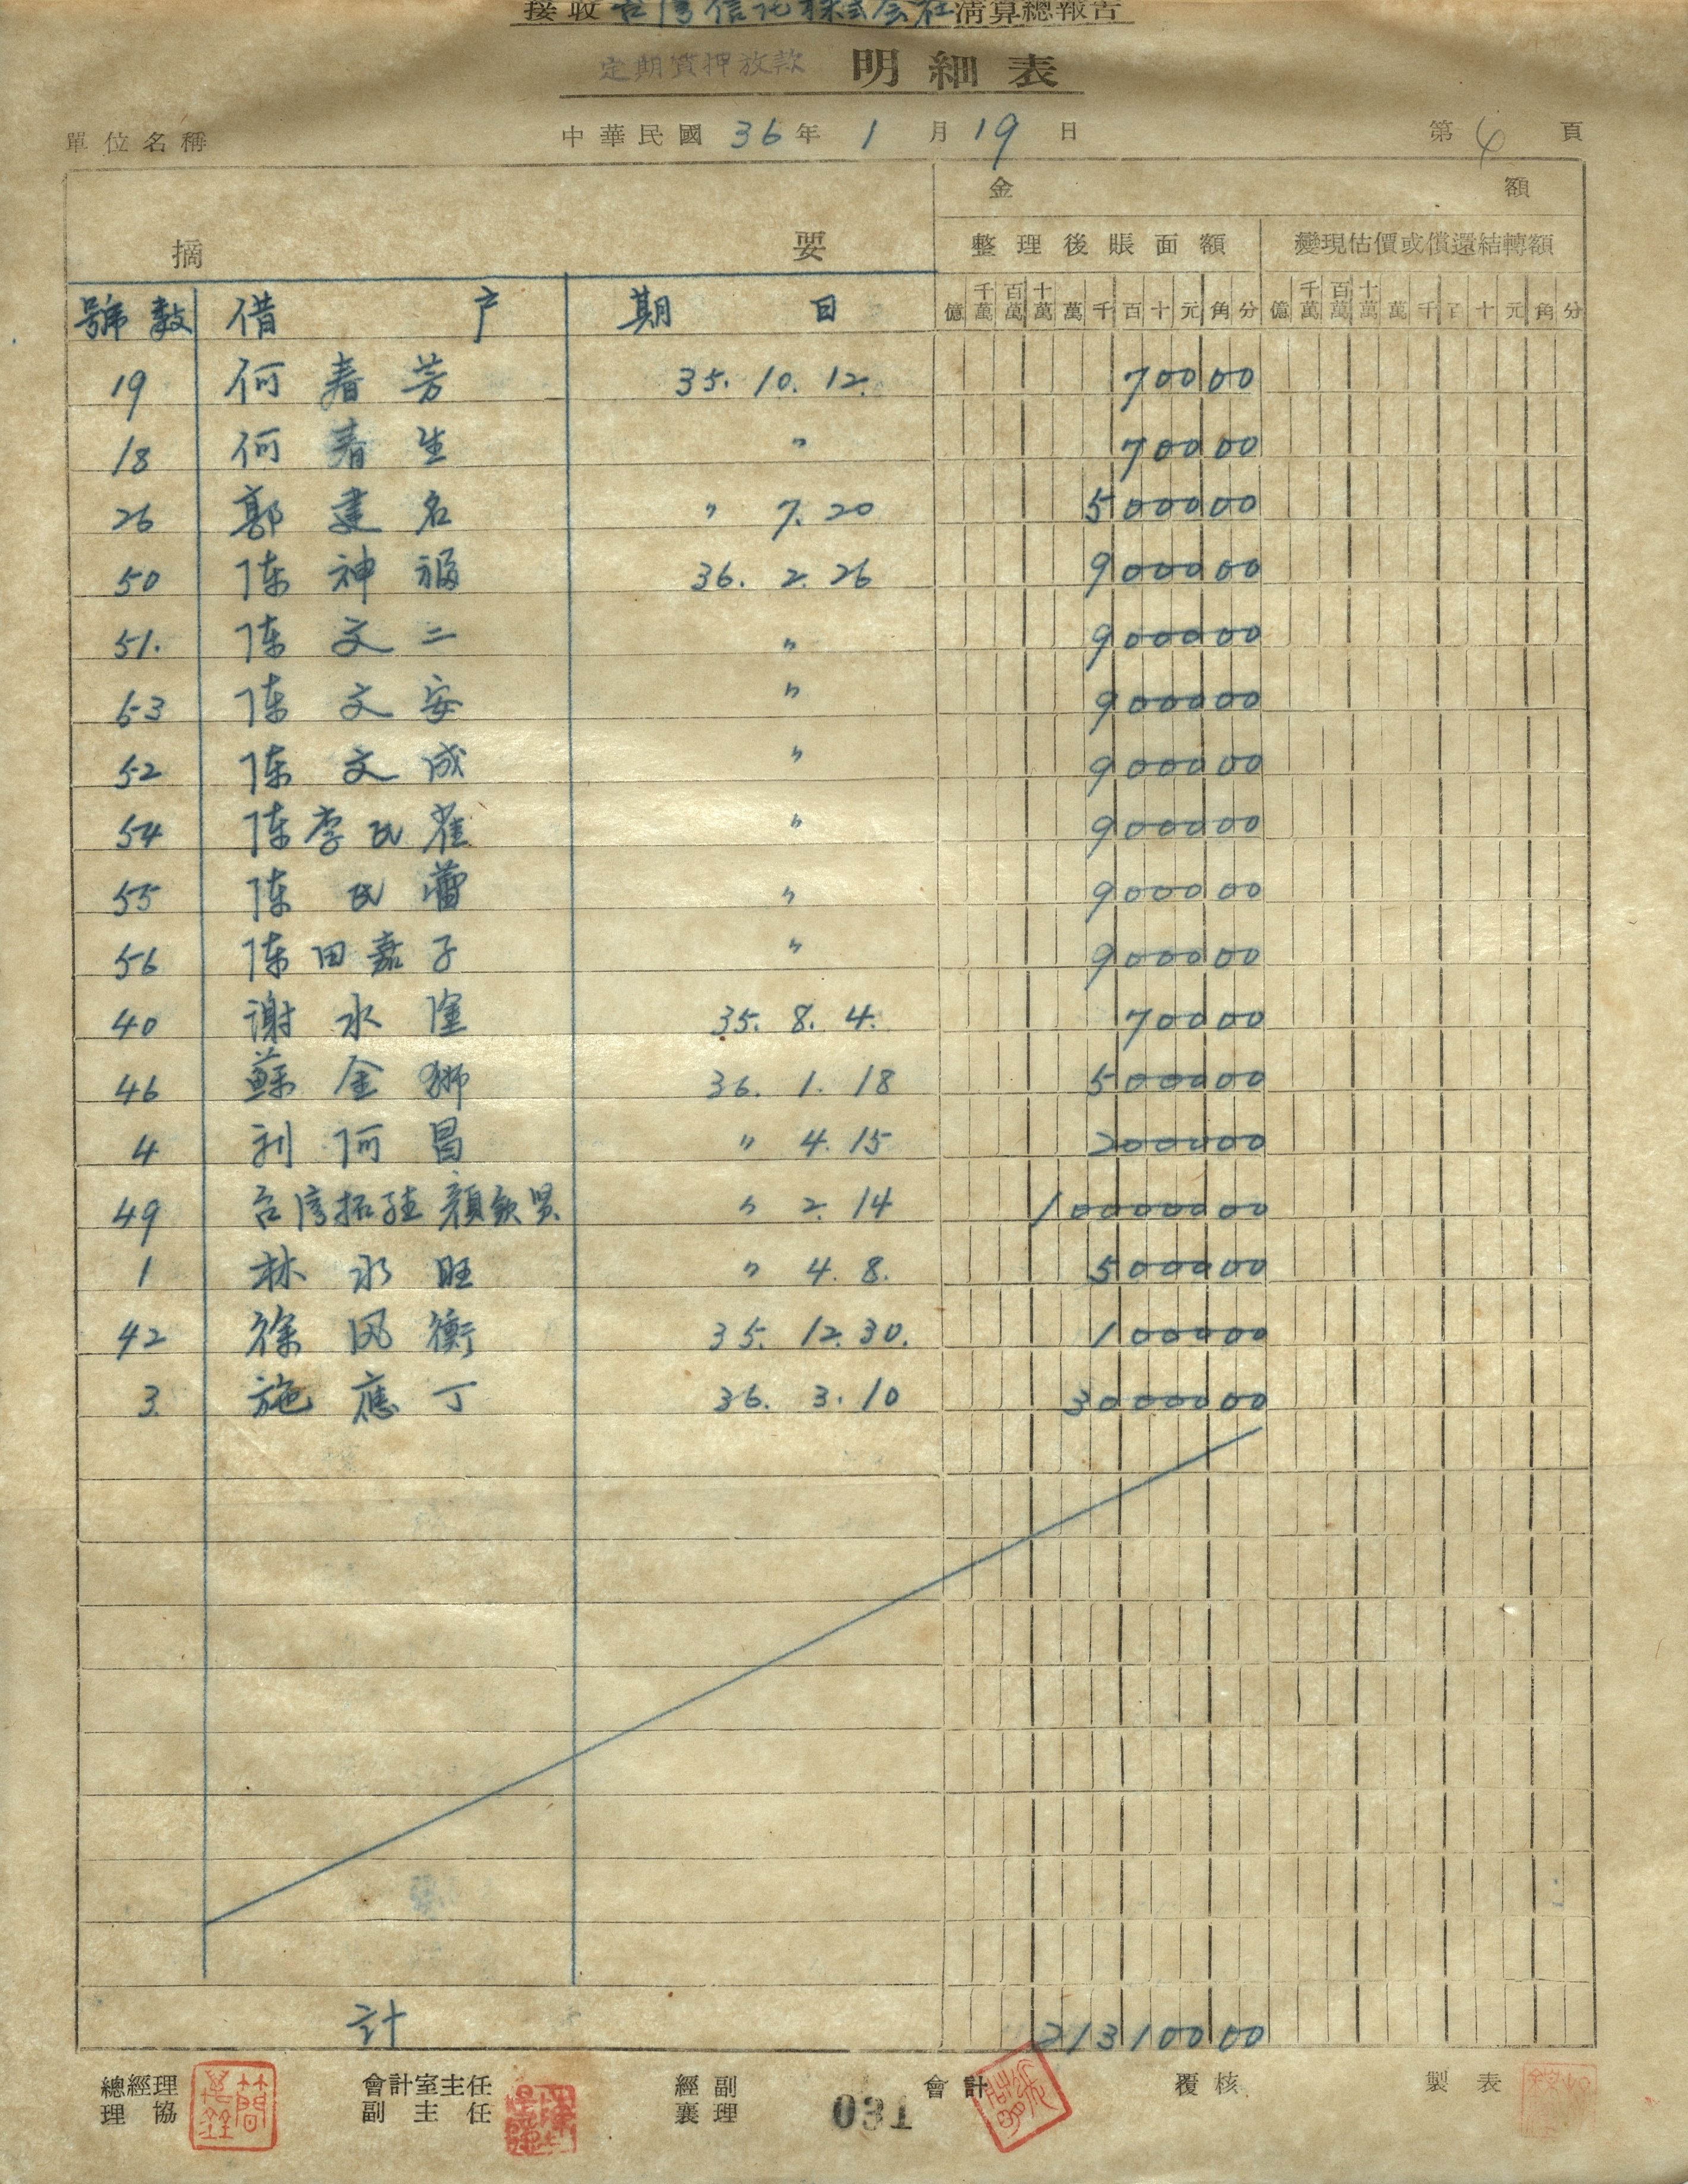 接收台湾信托株式会社清算總報告
定期質押放款 明細表
單位名稱 中華民國36年1月19日 第4頁
摘要 金額
整理後賬面額 變現估價或償還結轉額
號數 借戶 期日 億 千萬 百萬 十萬 萬 千 百 十 元 角 分 億 千萬 百萬 十萬 萬 千 百 十 元 角 分
19 何春芳 35. 10. 12. 70000
18 何春生 〃 70000
26 郭建名 〃 7. 20 500000
50 陈神福 36. 2. 26 900000
51. 陈文二 〃 900000
53 陈文安 〃 900000
52 陈文成 〃 900000
54 陈李氏雀 〃 900000
55 陈氏蕾 〃 900000
56 陈田嘉子 〃 900000
40 谢水 35. 8. 4. 70000
46 蘇金獅 36. 1. 18 500000
4 利阿昌 〃 4. 15 200000
49 台湾拓殖 顏欽賢 〃 2. 14 10000000
1 林水旺 〃 4. 8. 500000
42 徐风衡 35. 12. 30. 100000
3. 施應丁 36. 3. 10 3000000
計 21310000
總經理 會計室主任 經副 會計 覆核 製表
理協 副主任 襄理 031